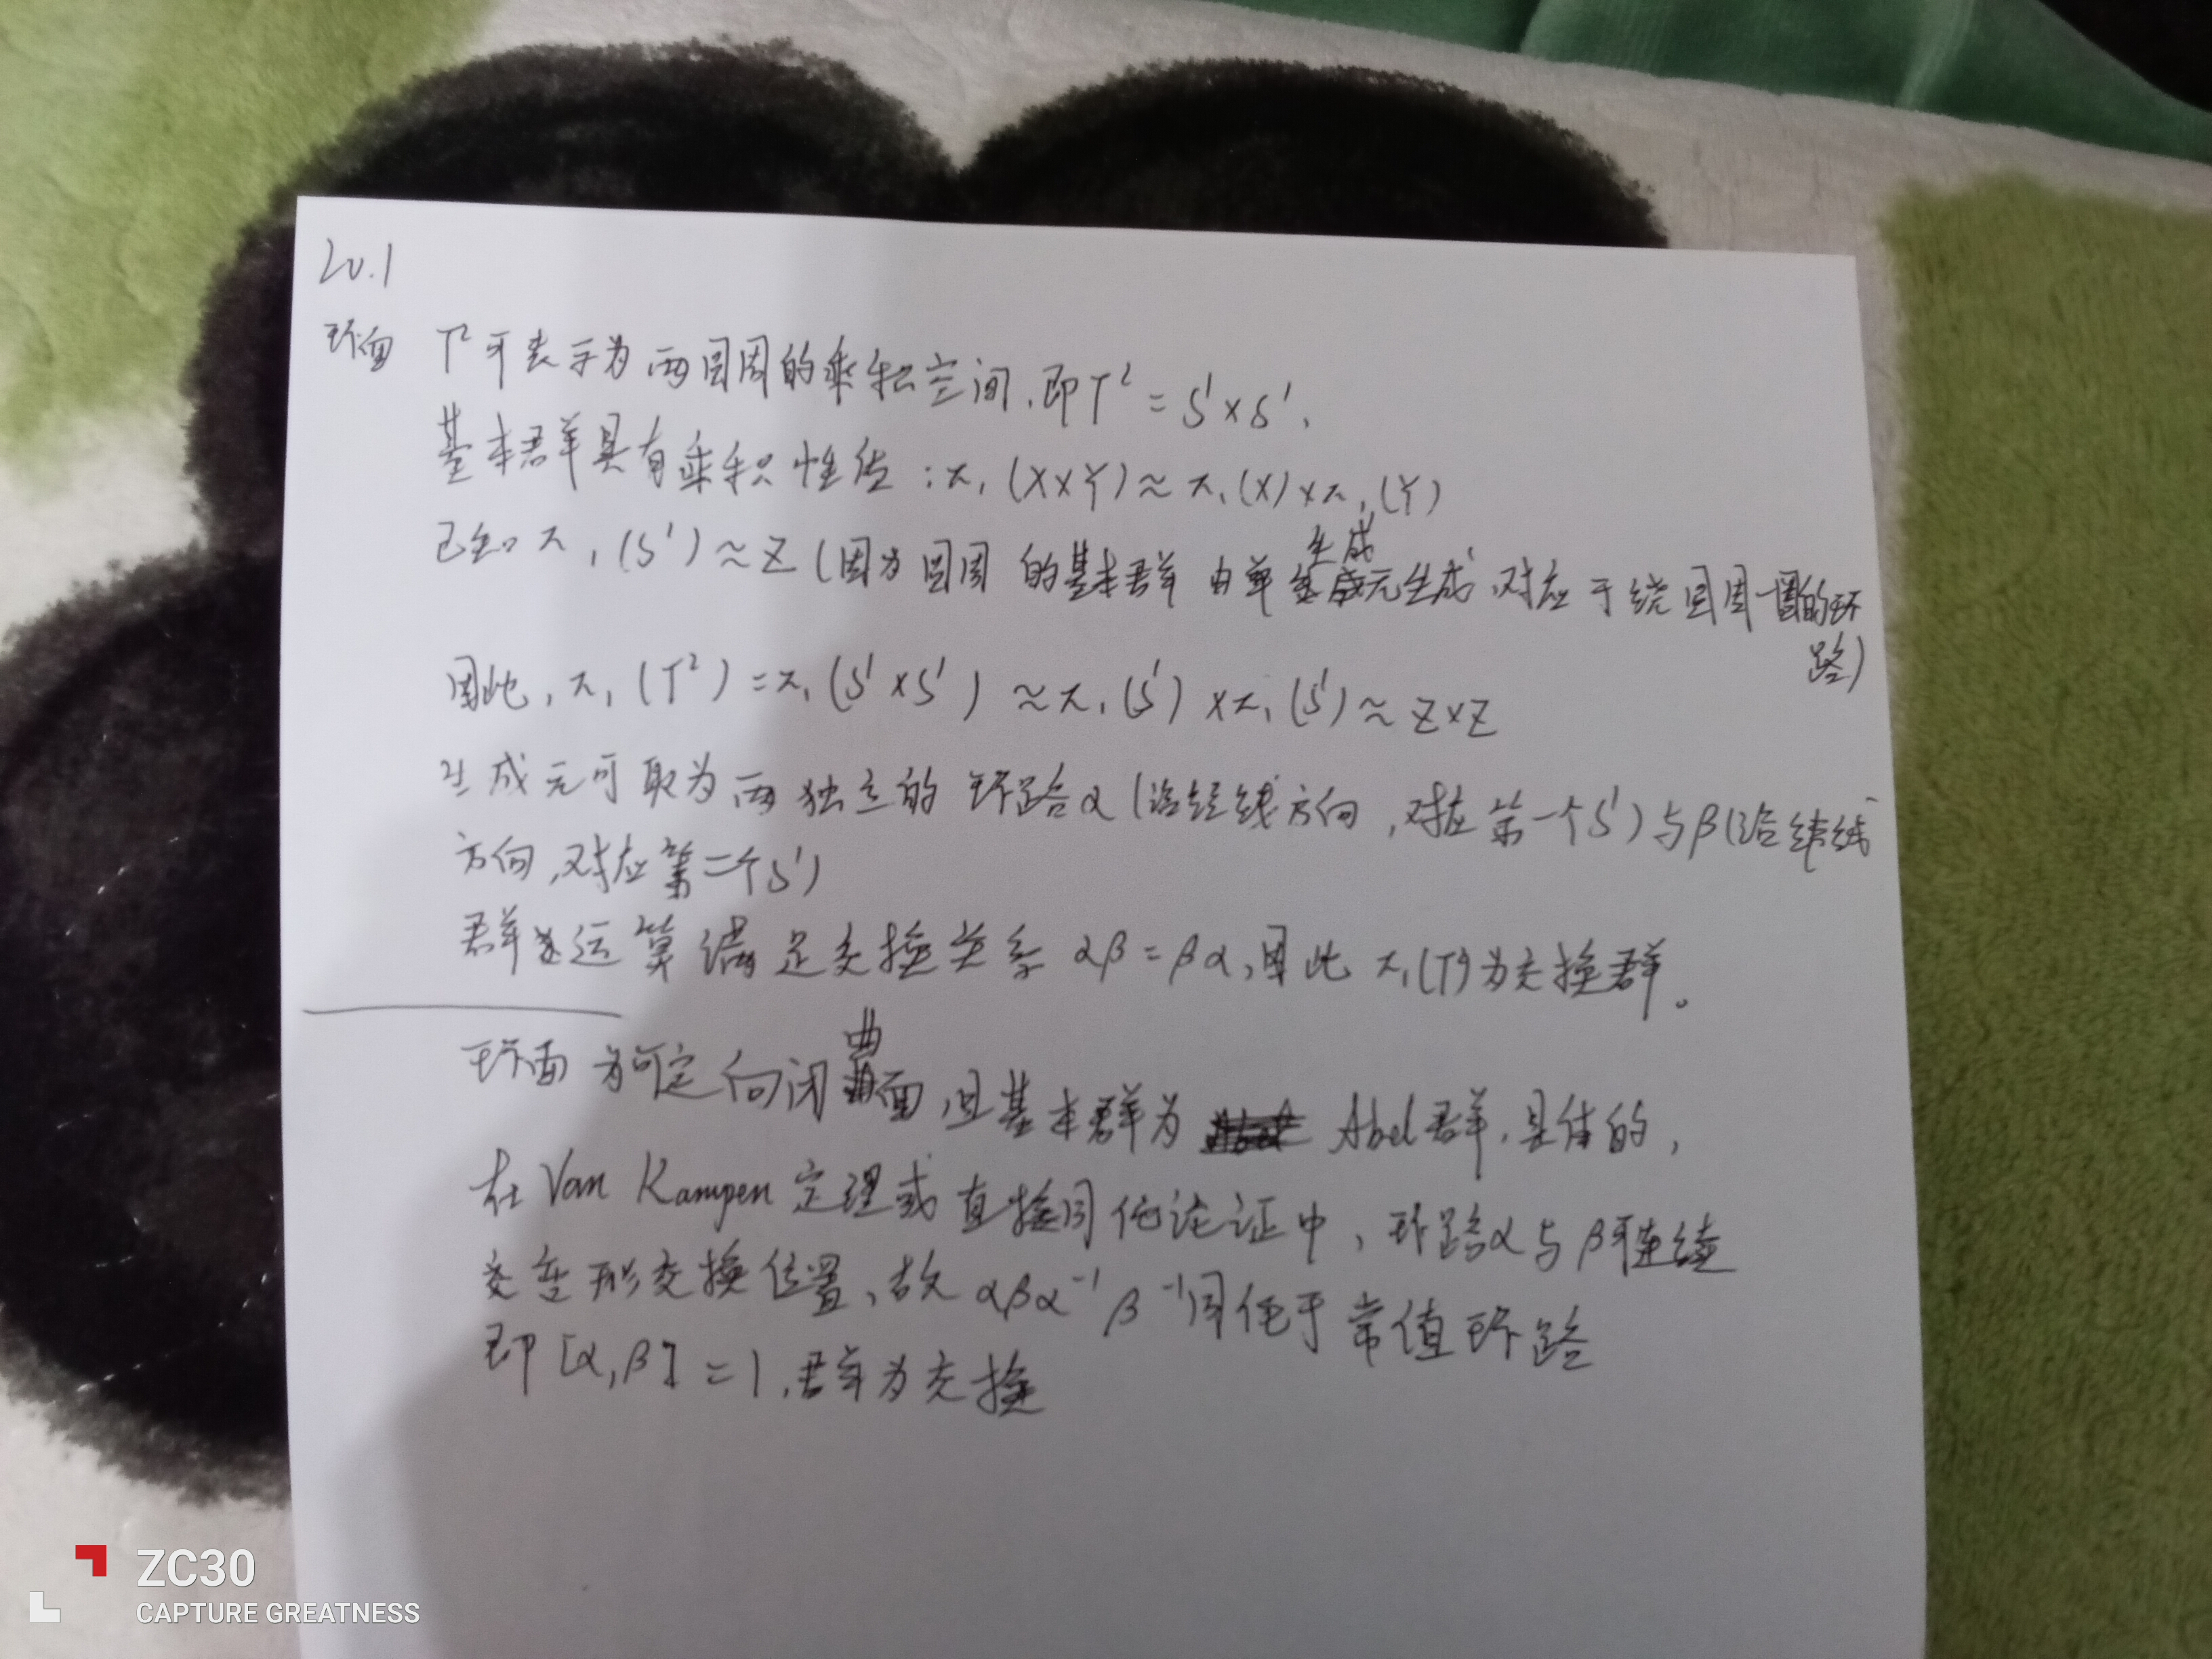 20.1
环面 T²可表示为两圆周的乘积空间,即T² = S¹×S¹.
基本群具有乘积性质:π₁(X×Y)≈π₁(X)×π₁(Y)
已知π₁(S¹)≈Z(因为圆周的基本群由单生成元生成,对应于绕圆周一圈的环路)
因此,π₁(T²)=π₁(S¹×S¹)≈π₁(S¹)×π₁(S¹)≈Z×Z
生成元可取为两独立的环路α(沿经线方向,对应第一个S¹)与β(沿纬线
方向,对应第二个S¹)
群运算满足交换关系αβ=βα,因此π₁(T²)为交换群。
环面为可定向闭曲面,且基本群为Abel群.具体的,
在Van Kampen定理或直接同伦论证中,环路α与β可连续
变形交换位置,故αβα⁻¹β⁻¹同伦于常值环路
即[α,β]=1,群为交换
ZC30
CAPTURE GREATNESS